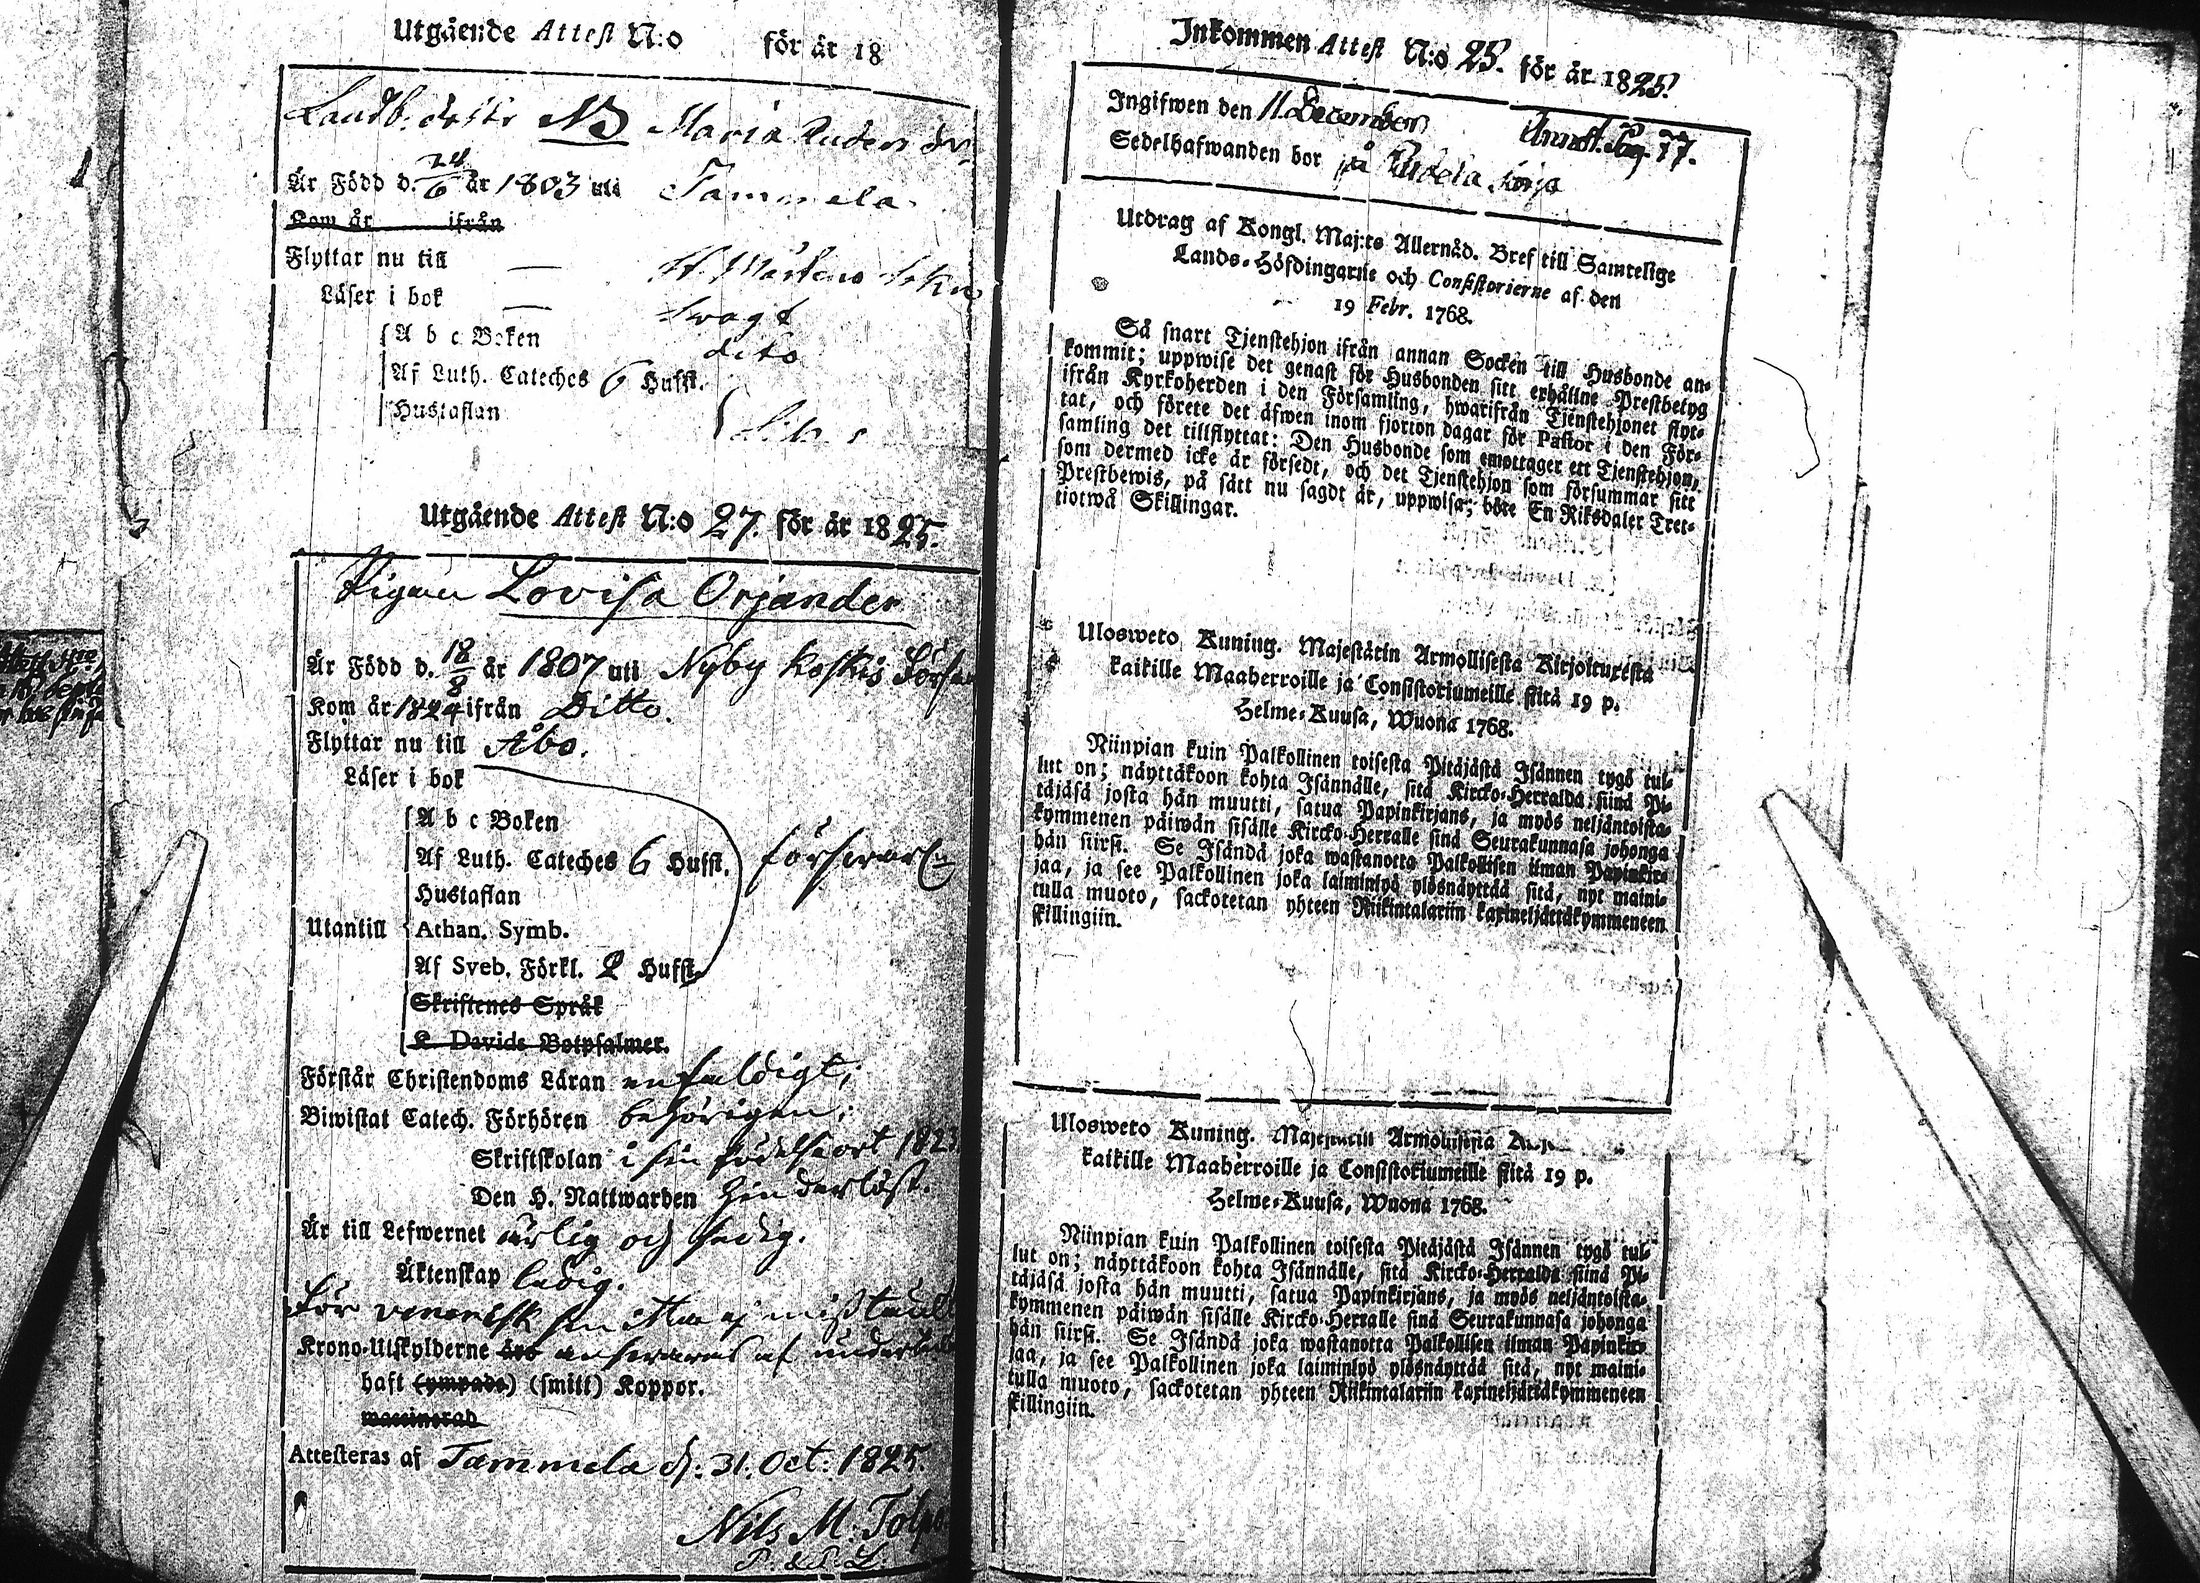 Utgående Attest N:o för år 18
Maria
Är Född d. 24/6 år 1803 uti Tammela
Kom år ifrån
Flyttar nu till — St. Mårtens
Läser i bok — svagt
A b c Boken dito
Af Luth. Cateches 6 Hufst.
Hustaflan
Utgående Attest N:o 27. för år 1825.
Pigan Lovisa Orjander
Är Född d. 18/8 år 1807 uti Nyby Koskis
Kom år 1824 ifrån Ditto.
Flyttar nu till Åbo.
Läser i bok
A b c Boken
Af Luth. Cateches 6 Hufst. försvarl.
Hustaflan
Utantill Athan. Symb.
Af Sveb. Förkl. 2 Hufst.
Skriftenes Språk
K. Davids Botpsalmer.
Förstår Christendoms Läran enfaldigt;
Biwistat Catech. Förhören behörigen;
Skriftskolan i sin födelseort 1823
Den H. Nattwarden hinderlöst.
Är till Lefwernet ärlig och sedig.
Äktenskap ledig.
För venerisk smitta ej
Krono-Utskylderne äro ansvaras af
haft (ympade) (smitt) Koppor.
waccinerad
Attesteras af Tammela d. 31. Oct: 1825.
Nils M.
Inkommen Attest N:o 25. för år 1825.
Ingifwen den 11 December Pag. 77.
Sedelhafwanden bor på
Utdrag af Kongl. Maj:ts Allernåd. Bref till Samtelige
Lands-Höfdingarne och Consistorierne af den
19 Febr. 1768.
Så snart Tjenstehjon ifrån annan Socken till Husbonde an-
kommit; uppwise det genast för Husbonden sitt erhållne Prestbetyg
ifrån Kyrkoherden i den Församling, hwarifrån Tjenstehjonet flyt-
tat, och förete det äfwen inom fjorton dagar för Pastor i den För-
samling det tillflyttat: Den Husbonde som emottager ett Tjenstehjon,
som dermed icke är försedt, och det Tjenstehjon som försummar sitt
Prestbewis, på sätt nu sagdt är, uppwisa; böte En Riksdaler Tret-
tiotwå Skillingar.
Ulosweto Kuning. Majestätin Armollisesta Kirjoituxesta
kaikille Maaherroille ja Consistoriumeille siitä 19 p.
Helme-Kuusa, Wuona 1768.
Niinpian kuin Palkollinen toisesta Pitäjästä Isännen tygö tul-
lut on; näyttäkoon kohta Isännälle, sitä Kircko-Herralda siinä Pi-
täjäsä josta hän muutti, satua Papinkirjans, ja myös neljäntoista-
kymmenen päiwän sisälle Kircko-Herralle siinä Seurakunnasa johonga
hän siirsi. Se Isändä joka wastanotta Palkollisen ilman Papinkir-
jaa, ja see Palkollinen joka laiminlyö ylösnäyttää sitä, nyt maini-
tulla muoto, sackotetan yhteen Riikintalariin kaxineljättäkymmeneen
skillingiin.
Ulosweto Kuning. Majestätin Armollisesta
kaikille Maaherroille ja Consistoriumeille siitä 19 p.
Helme-Kuusa, Wuona 1768.
Niinpian kuin Palkollinen toisesta Pitäjästä Isännen tygö tul-
lut on; näyttäkoon kohta Isännälle, sitä Kircko-Herralda siinä Pi-
täjäsä josta hän muutti, satua Papinkirjans, ja myös neljäntoista-
kymmenen päiwän sisälle Kircko-Herralle siinä Seurakunnasa johonga
hän siirsi. Se Isändä joka wastanotta Palkollisen ilman Papinkir-
jaa, ja see Palkollinen joka laiminlyö ylösnäyttää sitä, nyt maini-
tulla muoto, sackotetan yhteen Riikintalariin kaxineljättäkymmeneen
skillingiin.